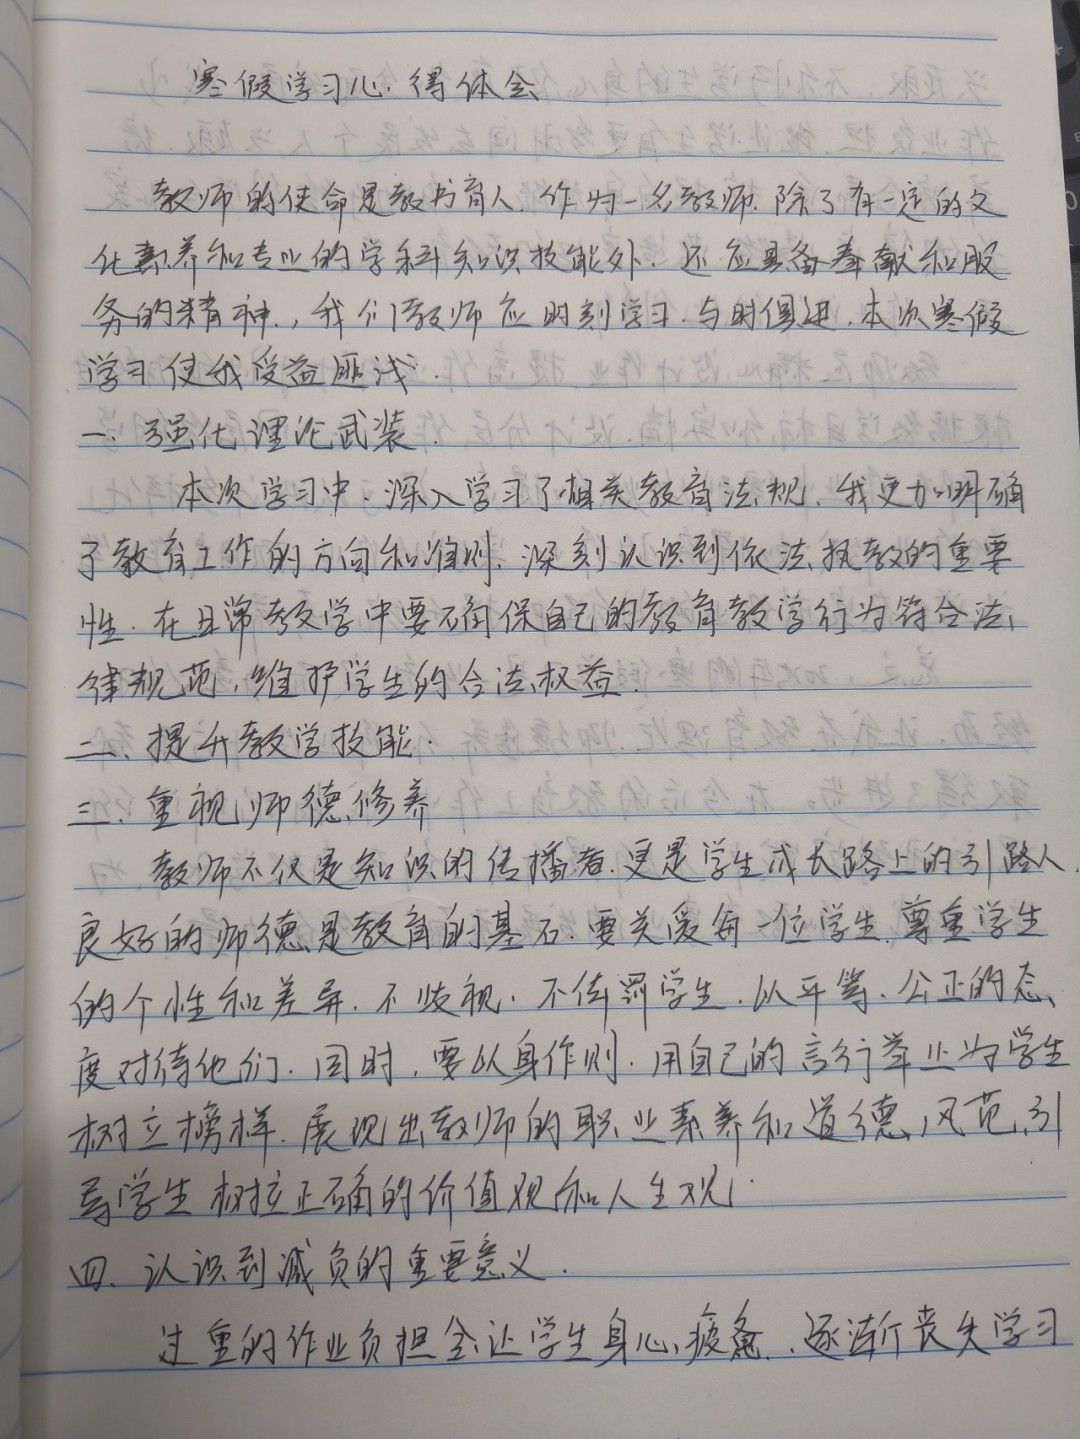 寒假学习心得体会
教师的使命是教书育人.作为一名教师.除了有一定的文
化素养和专业的学科知识技能外.还应具备奉献和服
务的精神.,我们教师应时刻学习.与时俱进.本次寒假
学习使我受益匪浅.
一、强化理论武装.
本次学习中.深入学习了相关教育法规.我更加明确
了教育工作的方向和准则.深刻认识到依法执教的重要
性.在日常教学中要确保自己的教育教学行为符合法
律规范,维护学生的合法权益.
二、提升教学技能.
三、重视师德修养
教师不仅是知识的传播者.更是学生成长路上的引路人.
良好的师德是教育的基石.要关爱每一位学生.尊重学生
的个性和差异.不歧视.不体罚学生.以平等.公正的态
度对待他们.同时,要以身作则.用自己的言行举止为学生
树立榜样.展现出教师的职业素养和道德风范,引
导学生树立正确的价值观和人生观.
四、认识到减负的重要意义.
过重的作业负担会让学生身心疲惫.,逐渐丧失学习